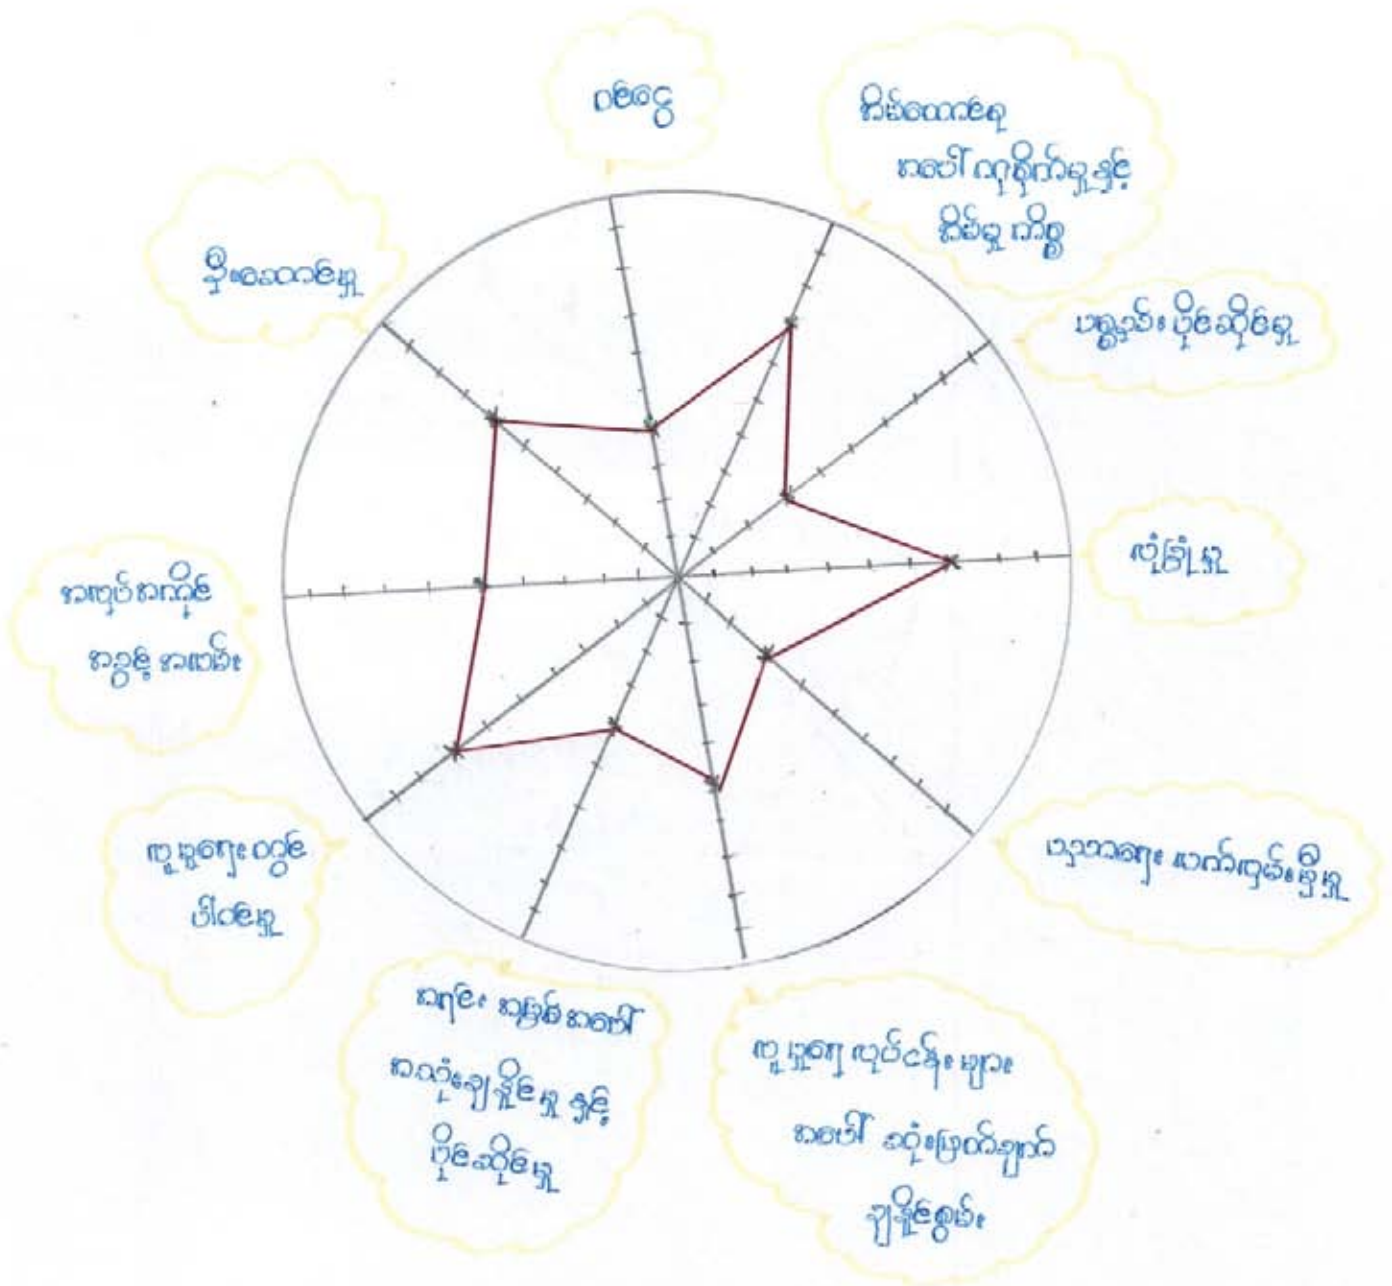 ဝင်ငွေ
အိမ်ထောင်စု
အပေါ် ကုစိုက်မှုနှင့်
အိမ်မှု ကိစ္စ
ပစ္စည်း ပိုင်ဆိုင်မှု
လုံခြုံမှု
ပညာရေး လက်လှမ်းမှီမှု
လူမှုရေး လုပ်ငန်းများ
အပေါ် ဆုံးဖြတ်ချက်
ချနိုင်စွမ်း
အရင်း အမြစ်အပေါ်
အသုံးချနိုင်မှု နှင့်
ပိုင်ဆိုင်မှု
လူမှုရေး တွင်
ပါဝင်မှု
အလုပ်အကိုင်
အခွင့် အလမ်း
ဦးဆောင်မှု